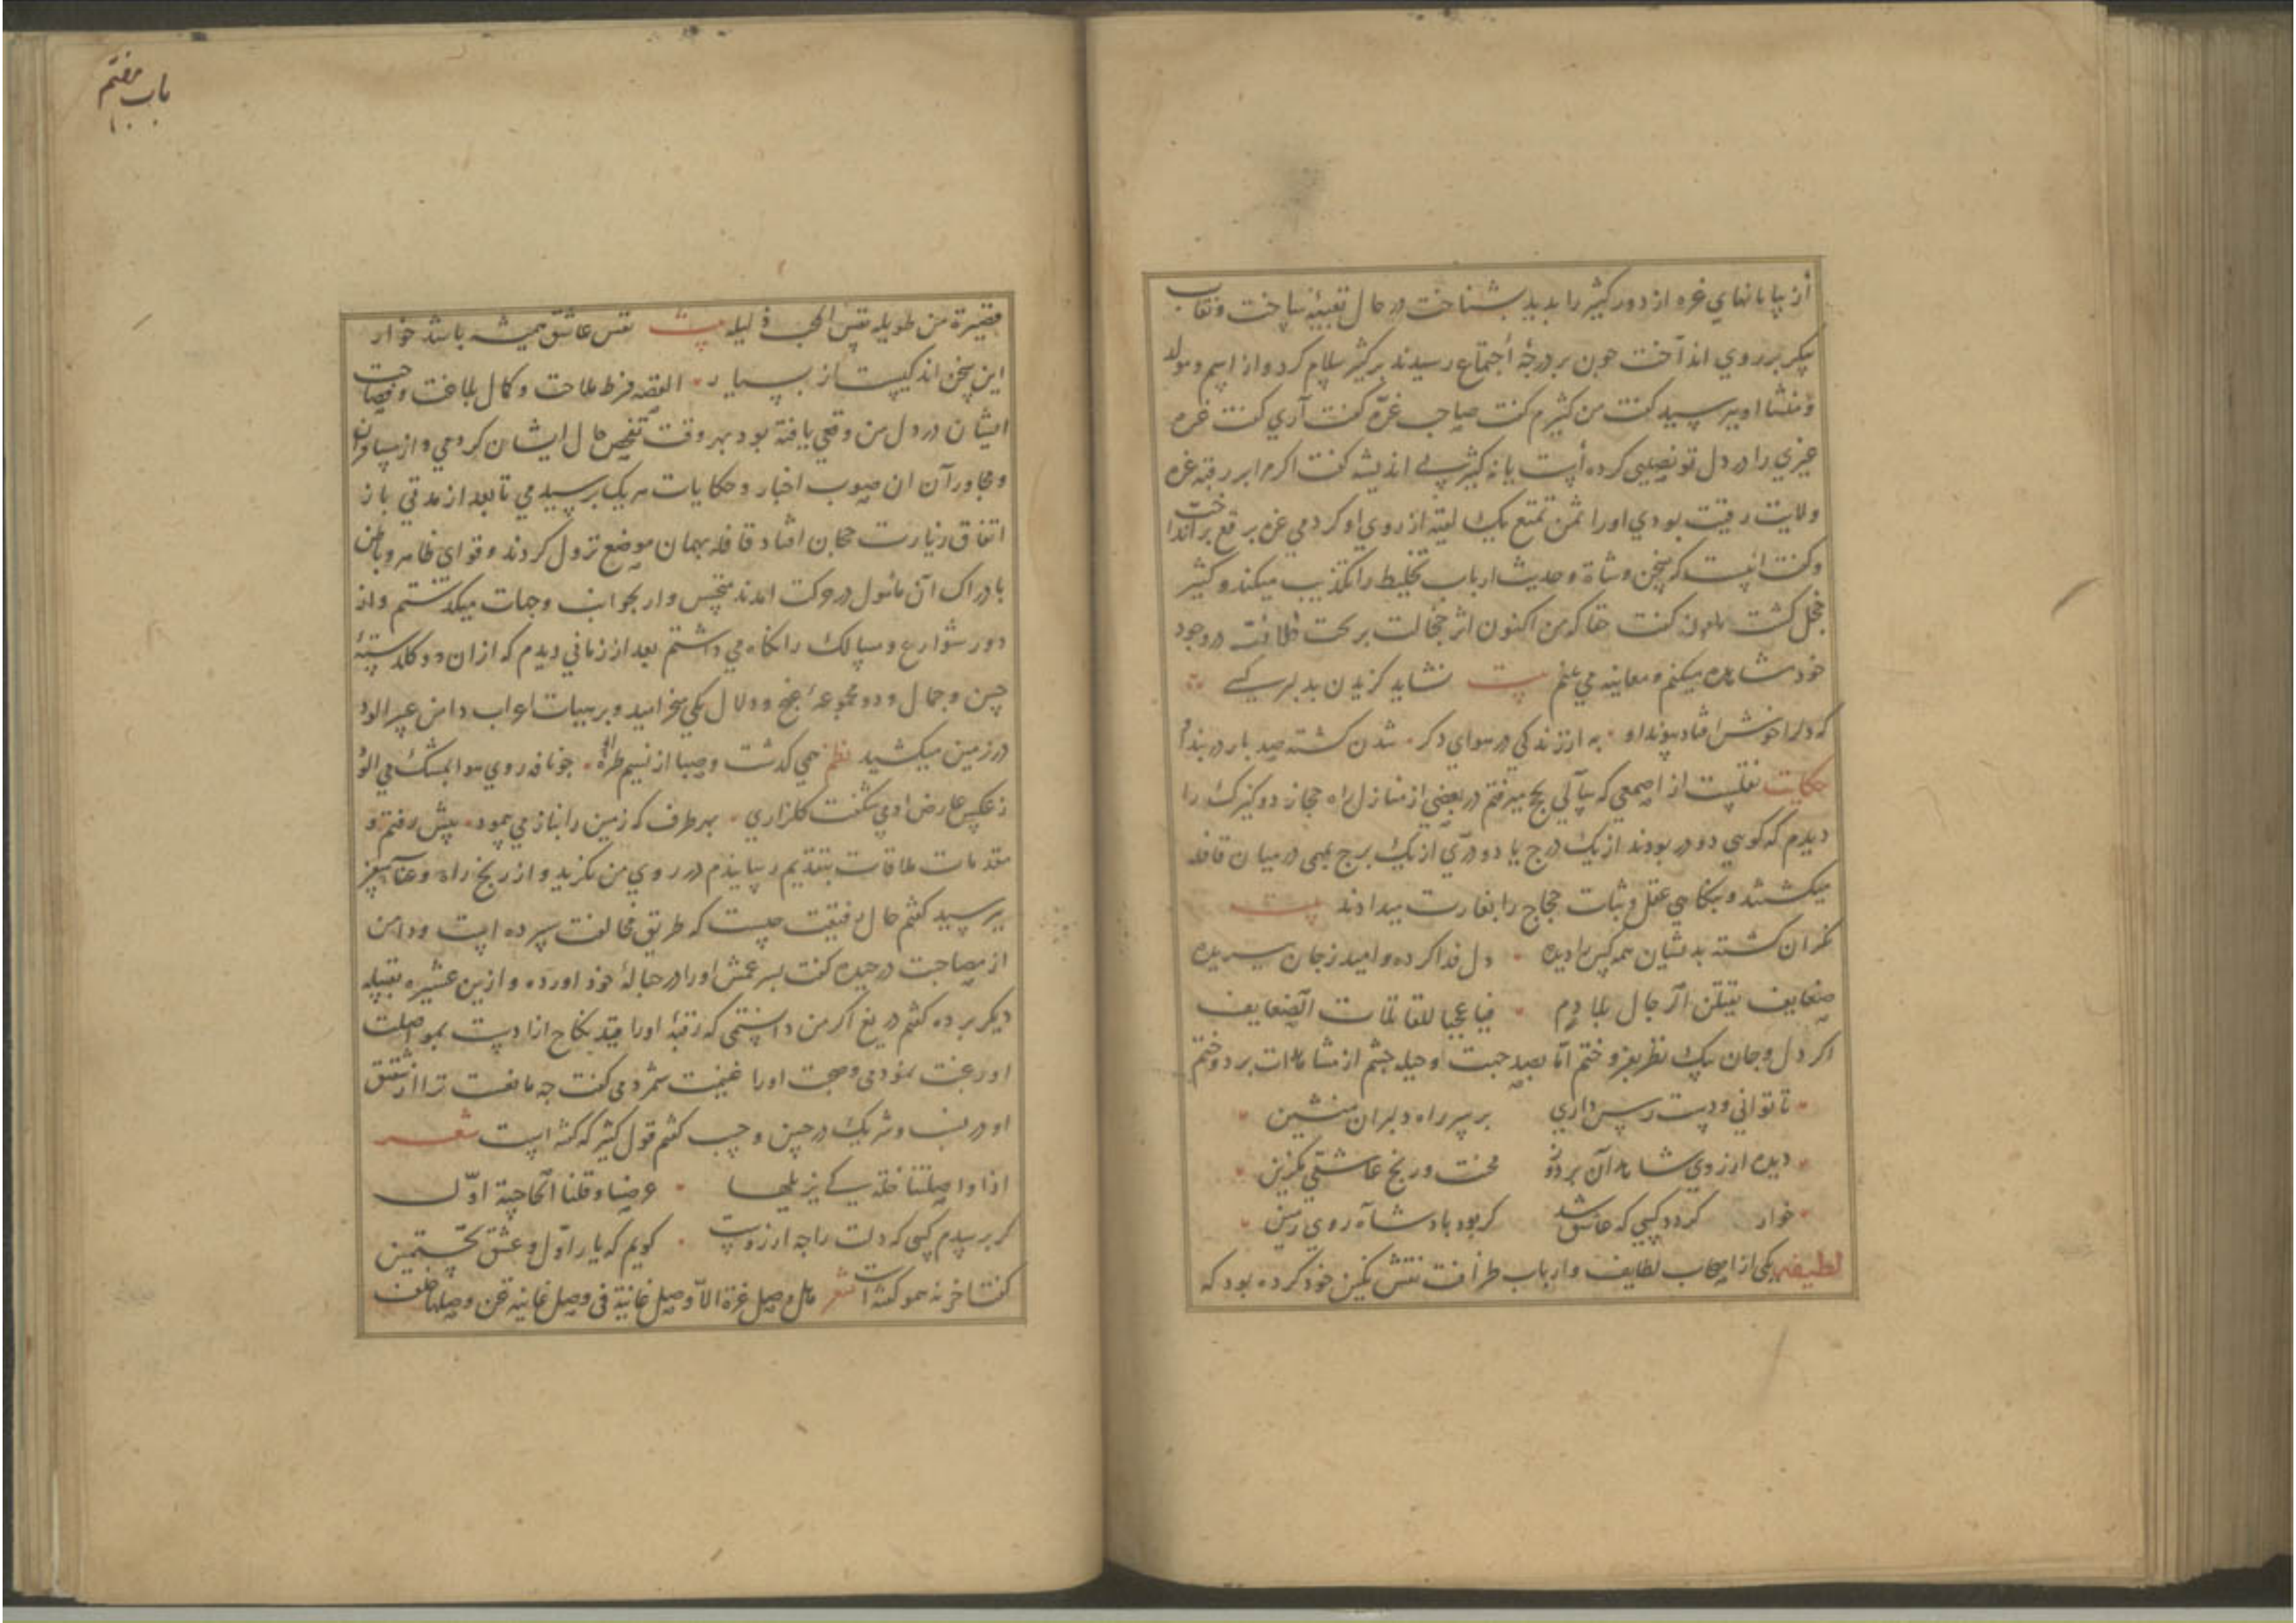 از بیابانهای غره از دور کثیر را بدید بشناخت در حال تعبیه بساخت و نقاب
پیکر بر روی انداخت جون بر درجهٔ اجتماع رسیدند بر کثیر سلام کرد و از اسم و مولد
و منشا او بپرسید کفت من کثیرم کفت صاحب غرّه کفت آری کفت غره
غیری را در دل تو نصیبی کرده است یا نه کثیر بی اندیشه کفت اکر امر رقبه غره
ولایت رقیت بودی او را ثمن تمتع یک از روی او کردمی عزه برقع برانداخت
و کفت اینست که سخن وشاة و حدیث ارباب تخلیط را تکذیب میکند و کثیر
خجل کشت کفت حقا که من اکنون اثر خجالت بر در وجود
خود مشاهده میکنم و معاینه می بینم بیت نشاید کزیدن بدلبر کسی
که دلرا خوش افتاد پیوند او به از زندکی در هوای دکر شدن کشته صد بار در بند او
حکایت نقلست از اصمعی که سالی بحج میرفتم در بعضی از منازل راه حجاز دو کنیزک را
دیدم که کویی دو در بودند از یک درج یا دو درّی از یک برج بمی در میان قافله
میکشتند و بنکاهی عقل و ثبات حجاج را بغارت میدادند بیت
نکران کشته بدیشان همه کس را دیده دل فدا کرده و امید ز جان ببریده
ضعایف یقتلن الرجال بلا دم فیا عجبا للقاتلات الضعایف
اکر دل و جان بیک نظر بفروختم اما بصد حبت و حیله جشم از مشاهدات بردوختم
تا توانی و دست رس داری بر سر راه دلبران منشین
دیده از روی شاهدان بردوز محنت و رنج عاشقی مکزین
خوار کردد کسی که عاشق شد کر بود بادشاه روی زمین
لطیفه یکی از اصحاب لطایف و ارباب ظرافت نقش نکین خود کرده بود که
باب هفتم
قصیرة من طویله نفس المحب ذلیله بیت نفس عاشق همیشه باشد خوار
این سخن اندکیست از بسیار القصه فرط ملاحت و کمال بلاغت و فصاحت
ایشان در دل من وقعی یافته بود بهر وقت تفحص حال ایشان کردمی و از مسافران
و مجاوران آن صوب اخبار و حکایات هر یک بپرسیدمی تا بعد از مدتی باز
اتفاق زیارت حجاز افتاد قافله بهمان موضع نزول کردند و قوای ظاهر و باطن
بادراک آن مامول در حرکت امدند متجسس وار بجوانب و جهات میکذشتم و از
دور شوارع و مسالک را نکاه می داشتم بعد از زمانی دیدم که از ان دو کلدستهٔ
حسن و جمال و دو مجموعهٔ غنج و دلال یکی میخرامید و بر هیات اعراب دامن عبیر الود
در زمین میکشید نظم همی کذشت و صبا از نسیم طرهٔ او جو نافه روی هوا بمشک می الود
ز عکس عارض او می شکفت کلزاری بهر طرف که زمین را بناز می پیمود پیش رفتم و
مقدمات ملاقات بتقدیم رسانیدم در روی من نکرید و از رنج راه و عنا سفر
بپرسید کفتم حال رفیقت جیست که طریق مخالفت سپرده است و دامن
از مصاحبت در حیده کفت پسر عمش او را در حبالهٔ خود اورده و ازین عشیره بقبیله
دیکر برده کفتم دریغ اکر من دانستمی که رقبهٔ او را قید نکاح ازادست بمواصلت
او رغبت نمودمی و صحبت او را غنیمت شمردمی کفت جه مانعست ترا از شقیق
او در نسب و شریک در حسن و حسب کفتم قول کثیر که کفته است شعر
اذا واصلتنا خلة کی یزیلها عرضنا و قلنا الحاجبیة اوّل
کر بر سدم کسی که دلت را جه ارزوست کویم که یار اوّل و عشق نخستین
کفتا خر نه هم او کفته است شعر هل وصل عزة الاّ وصل غانیة فی وصل غانیة عن وصلها خلف